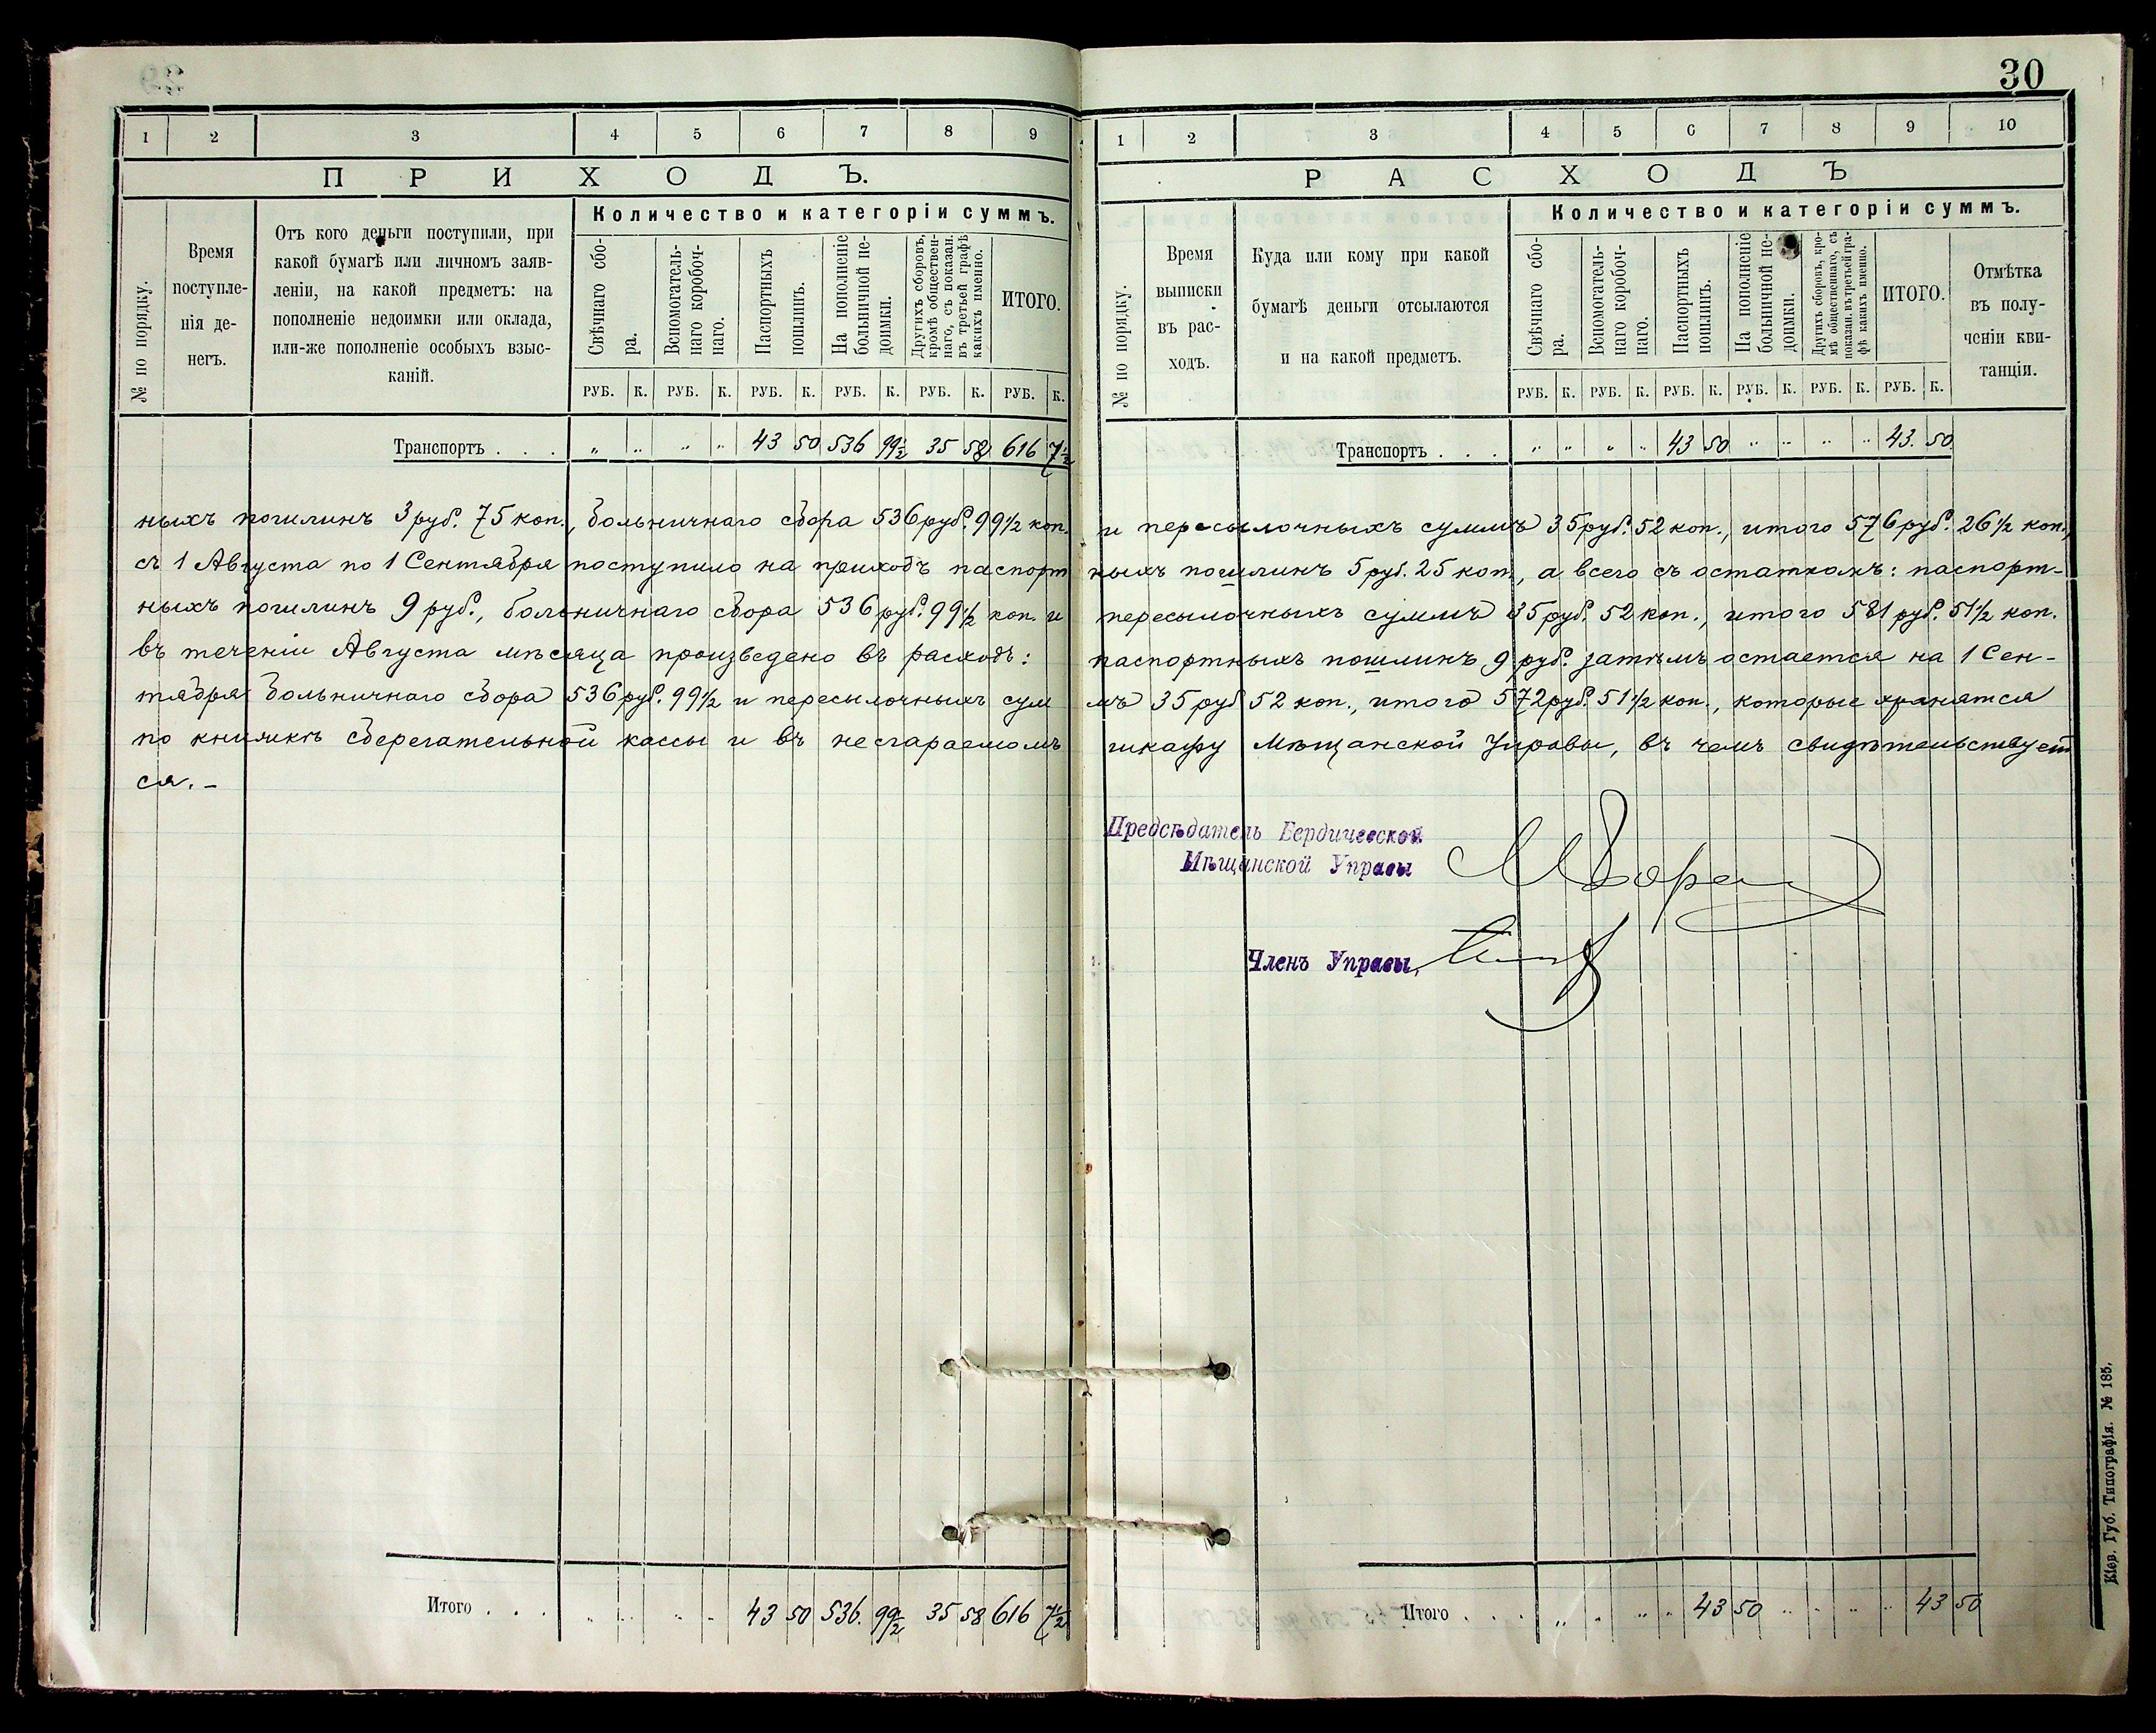 30
1 2 3 4 5 6 7 8 9
ПРИХОДЪ.
№ по порядку.
Время поступле-
нія де-
негъ.
Отъ кого деньги поступили, при
какой бумагѣ или личномъ заяв-
леніи, на какой предметъ: на
пополненіе недоимки или оклада,
или-же пополненіе особыхъ взыс-
каній.
Количество и категоріи суммъ.
Свѣчнаго сбо-
ра.
Вспомогатель-
наго коробоч-
наго.
Паспортныхъ
пошлинъ.
На пополненіе
больничной не-
доимки.
Другихъ сборовъ,
кромѣ обществен-
наго, съ показан.
въ третьей графѣ
какихъ именно.
ИТОГО.
РУБ. К. РУБ. К. РУБ. К. РУБ. К. РУБ. К. РУБ. К.
Транспортъ . . . „ „ „ „ 43 50 536 99½ 35 58 616 7½
1 2 3 4 5 6 7 8 9 10
РАСХОДЪ
№ по порядку.
Время
выписки
въ рас-
ходъ.
Куда или кому при какой
бумагѣ деньги отсылаются
и на какой предметъ.
Количество и категоріи суммъ.
Свѣчнаго сбо-
ра.
Вспомогатель-
наго коробоч-
наго.
Паспортныхъ
пошлинъ.
На пополненіе
больничной не-
доимки.
Другихъ сборовъ, кро-
мѣ общественнаго, съ
показан. въ третьей гра-
фѣ какихъ именно.
ИТОГО.
Отмѣтка
въ полу-
ченіи кви-
танціи.
РУБ. К. РУБ. К. РУБ. К. РУБ. К. РУБ. К. РУБ. К.
Транспортъ . . . „ „ „ „ 43 50 „ „ „ „ 43. 50
ныхъ пошлинъ 3 руб. 75 коп., больничнаго сбора 536 руб. 99½ коп. и пересылочныхъ суммъ 35 руб. 52 коп., итого 576 руб. 26½ коп.,
съ 1 Августа по 1 Сентября поступило на приходъ паспорт ныхъ пошлинъ 5 руб. 25 коп., а всего съ остаткомъ: паспорт-
ныхъ пошлинъ 9 руб., больничнаго сбора 536 руб. 99½ коп. и пересылочныхъ суммъ 35 руб. 52 коп., итого 581 руб. 51½ коп.
въ теченіи Августа мѣсяца произведено въ расходъ: паспортныхъ пошлинъ 9 руб. затѣмъ остается на 1 Сен-
тября больничнаго сбора 536 руб. 99½ и пересылочныхъ сум мъ 35 руб 52 коп., итого 572 руб. 51½ коп., которые хранятся
по книжкѣ сберегательной кассы и въ несгараемомъ шкафу Мѣщанской Управы, въ чемъ свидѣтельствует
ся.-
Предсѣдатель Бердичевской
Мѣщанской Управы
Членъ Управы,
Итого . . . „ „ „ „ 43 50 536. 99½ 35 58 616 7½
Итого . . . „ „ „ „ 43 50 „ „ „ „ 43 50
Кіев. Губ. Типографія. № 185.